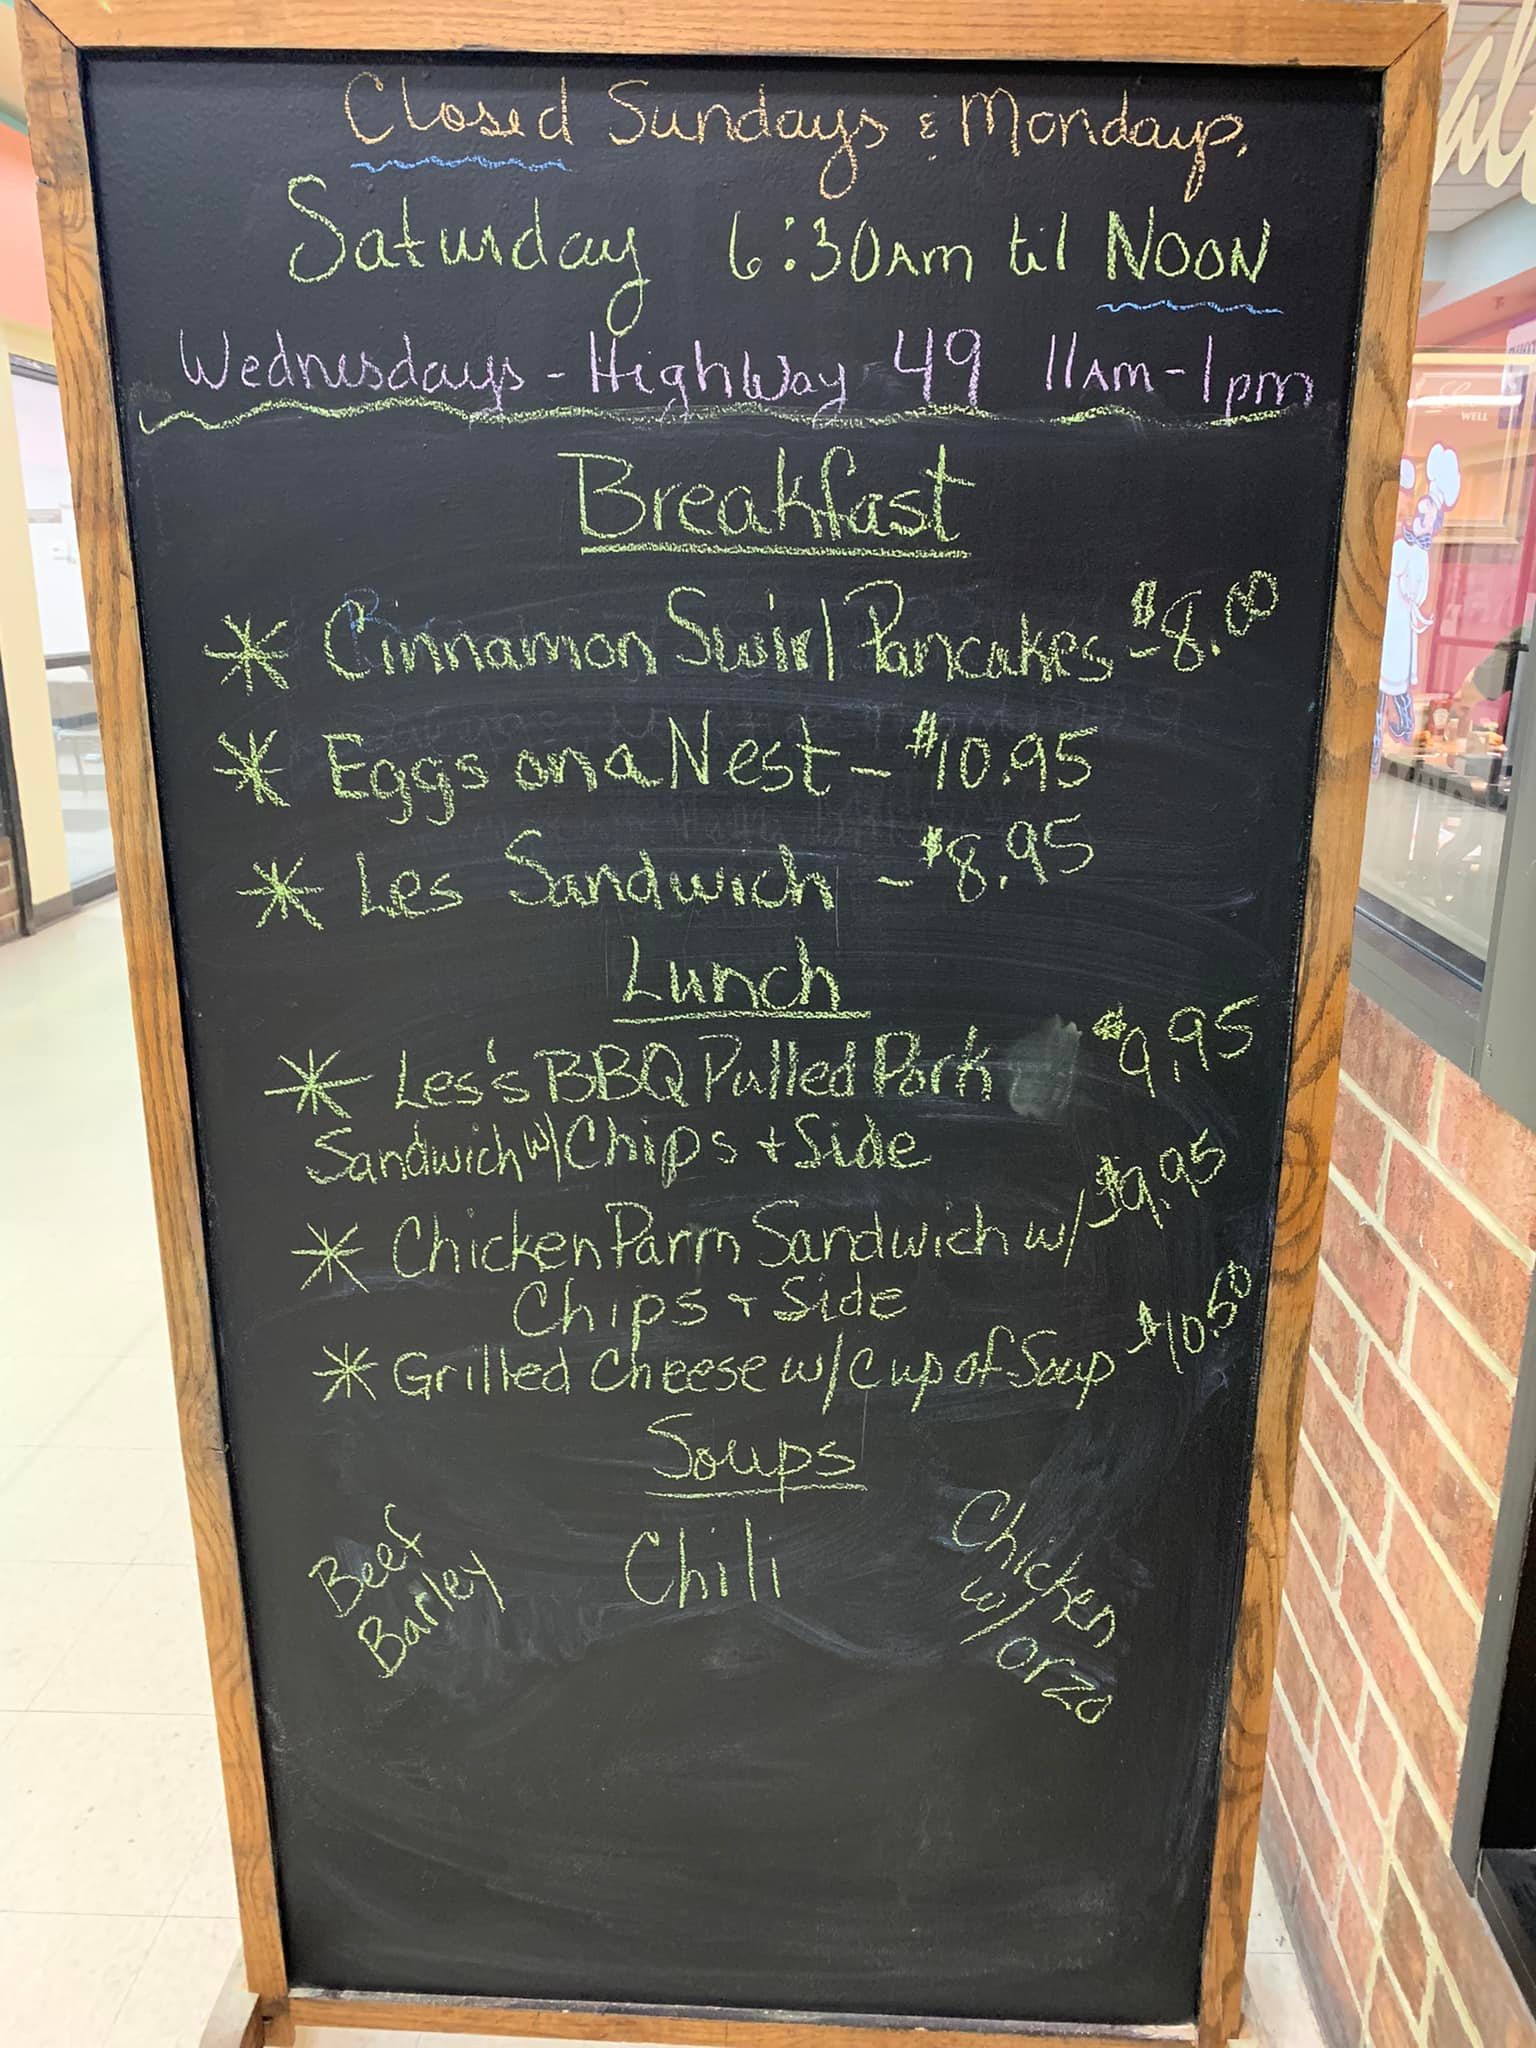 Closed Sundays & Mondays.
Saturday 6:30AM til NOON
Wednesdays - Highway 49 11AM-1pm
Breakfast
* Cinnamon Swirl Pancakes - $8.00
* Eggs on a Nest - $10.95
* Les Sandwich - $8.95
Lunch
* Les's BBQ Pulled Pork $9.95
Sandwich w/ Chips + Side
* Chicken Parm Sandwich w/ $9.95
Chips + Side
* Grilled Cheese w/ Cup of Soup $10.50
Soups
Beef
Barley
Chili
Chicken
w/ orzo
WELL